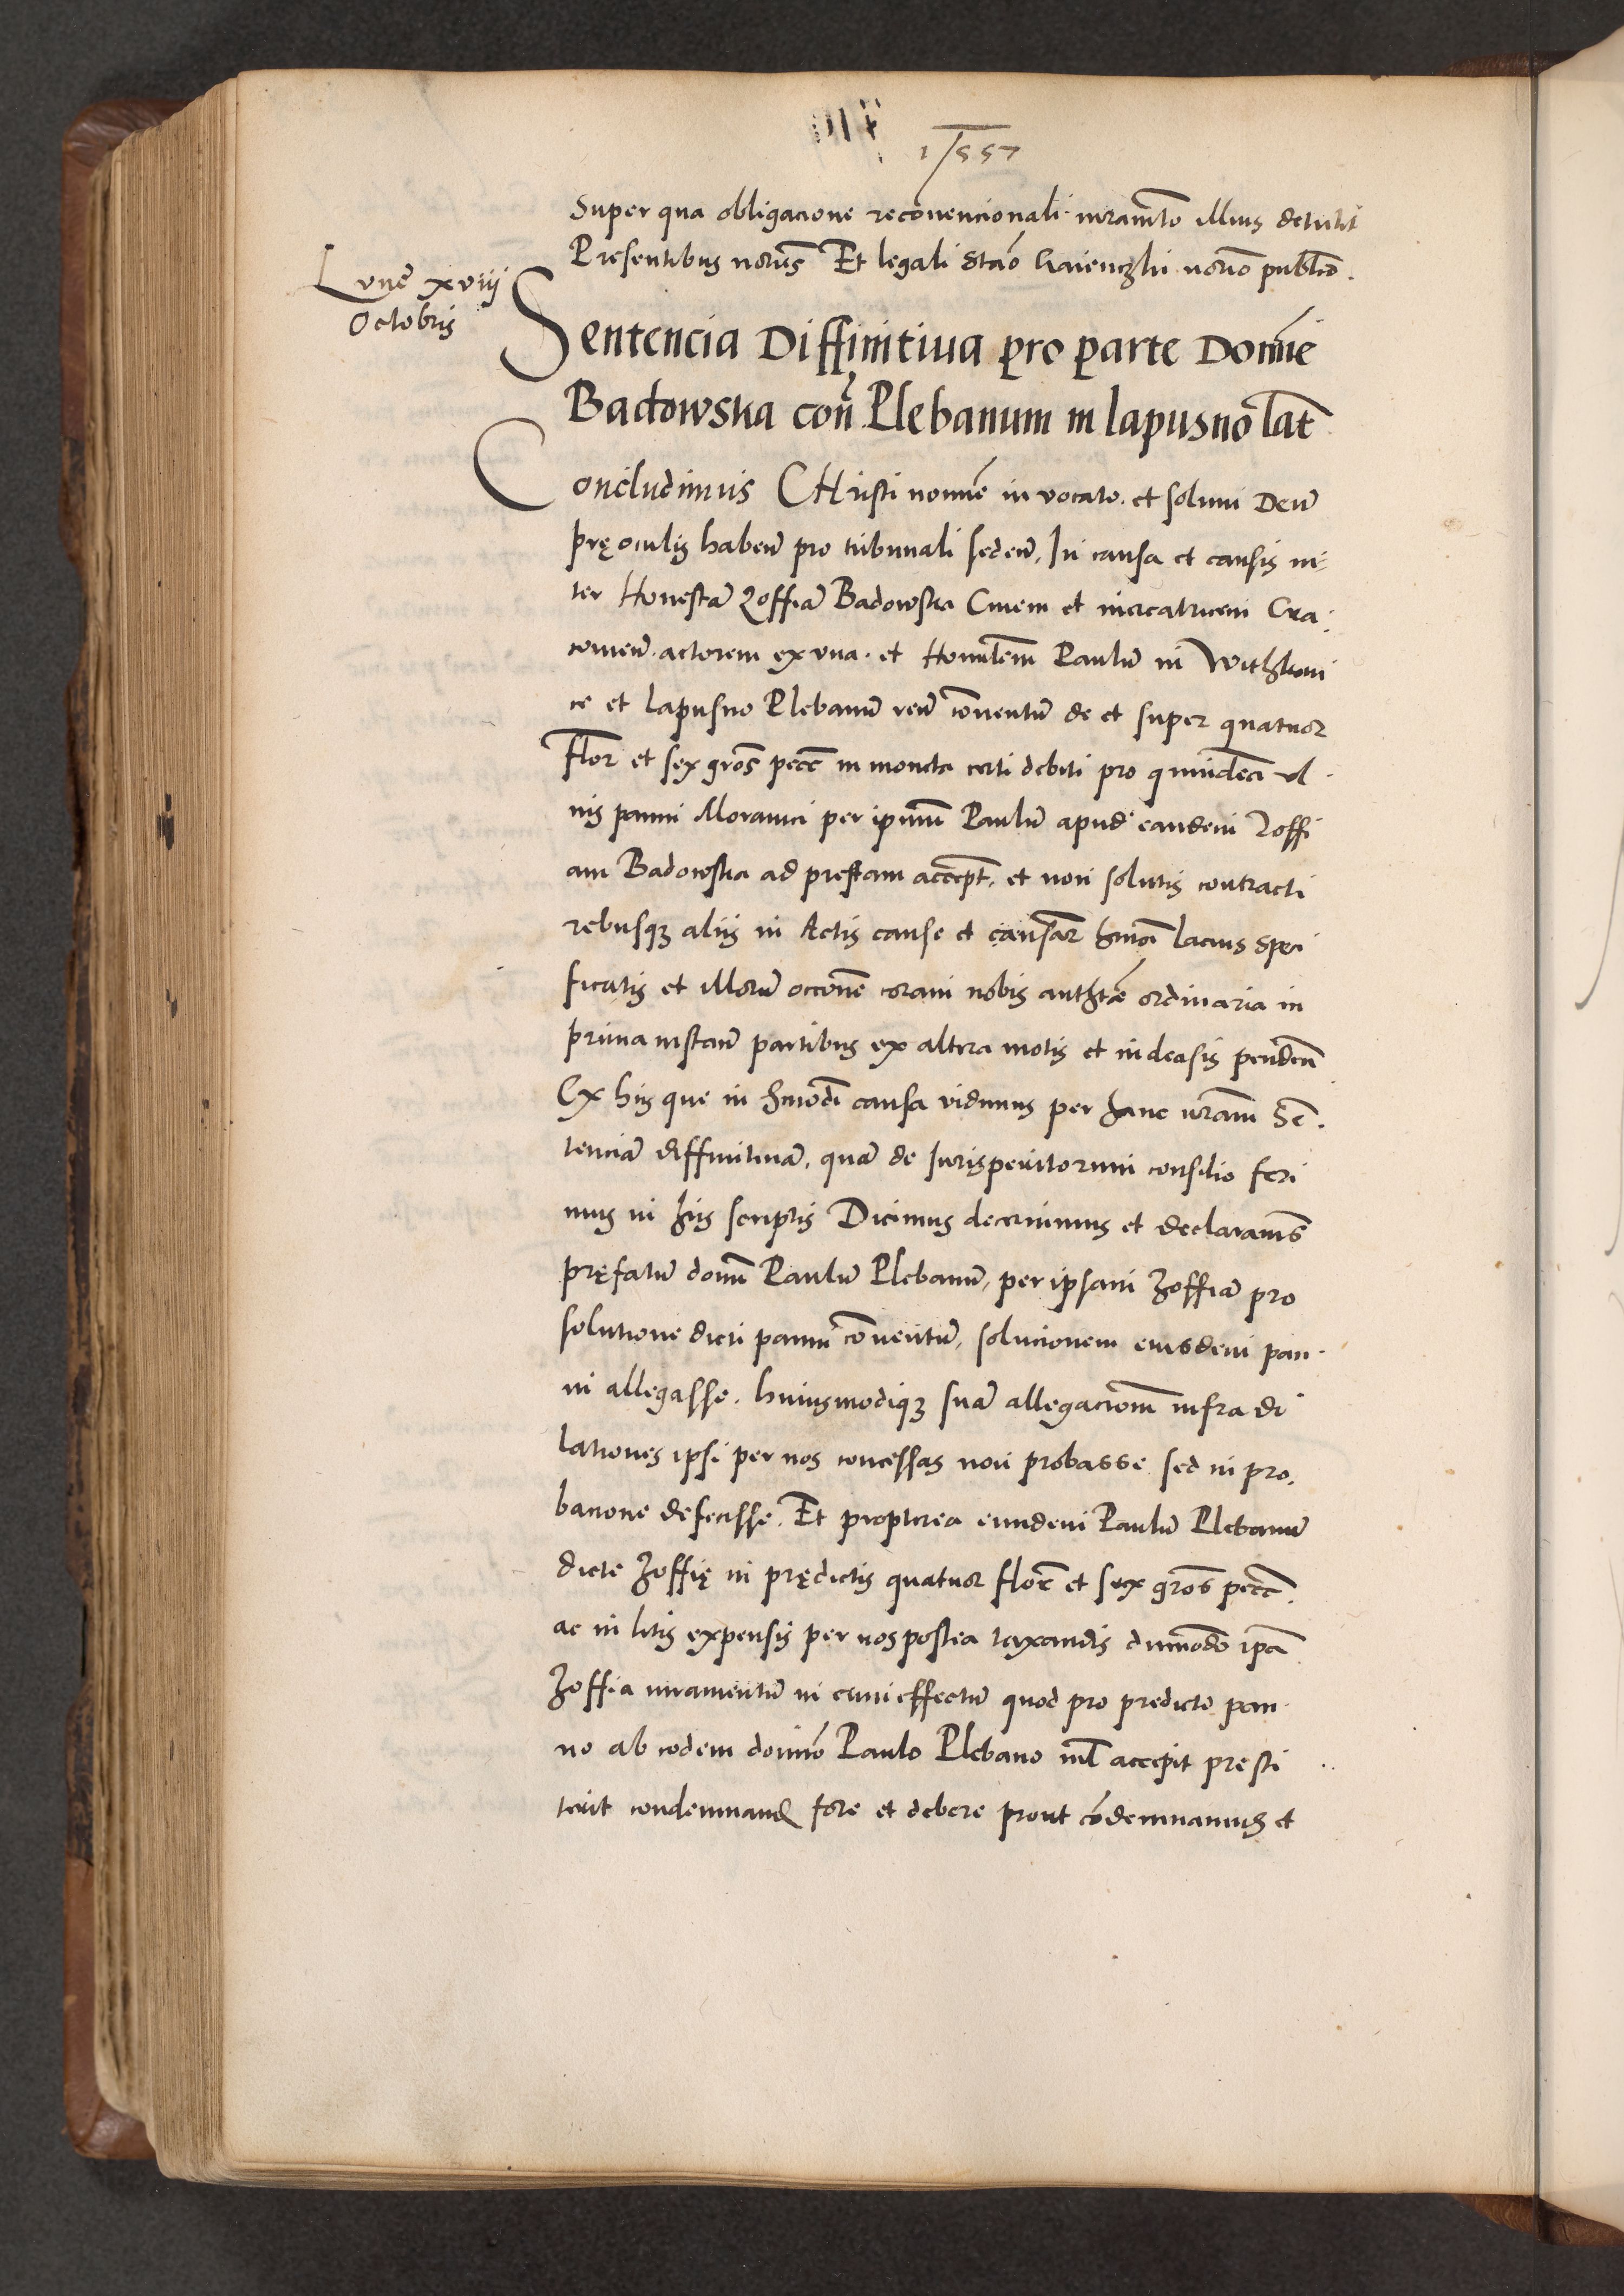 1557
Super qua obligacione recōvencionali iuramto illius detulit
Presentibus notus Et legali Stāo notio publico.
Lune xviij
Octobris
Sentencia Diffinitiua pro parte Domne
Badowska con Plebanum in lapusno lat
Concludimus CHristi nomine invocato. et solum Deū
prę oculis haben pro tribunali seden, In causa et causis in
ter Honestā Zoffiā Badowska Ciuem et mercatricem Cra
couien. actorem ex vna. et Honibilem Paulū in Withkoui
ce et Lapusno Plebanū reū cōventū de et super quatuor
Flor et sex gros pecc in moneta certi debiti pro quindeci vl
nis panni Morauici per ipsum Paulū apud eandem Zoffi
am Badowska ad prestam accept. et non solutis contracti
rebusqʒ aliis in Actis cause et causar hmōi lacius speci
ficatis et illorū occōne coram nobis authte ordinaria in
prima instan partibus ex altera motis et indecisis penden
Ex his que in hmōdi causa vidimus per hanc nram Sē
tenciā diffinitiuā, quā de Jurisperitorum consilio feri
mus in his scriptis Dicimus decernimus et declaramus
pręfatū domū Paulū Plebanū, per ipsam Zoffiā pro
solutione dicti panni cōventū, solucionem eiusdem pan
ni allegasse. huiusmodiqʒ suā allegacionē infra di
lationes ipsi per nos concessas non probasse sed in pro
bacione defecisse. Et propterea eundem Paulū Plebanū
dicte Zoffię in prędictis quatuor flor et sex gros pecc.
ac in litis expensis per nos postea taxandis dummodo ipā
Zoffia iuramentū in eum effectū quod pro predicto pan
no ab eodem domīo Paulo Plebano nil accepit presti
terit condemnand fore et debere prout cōdemnamus et